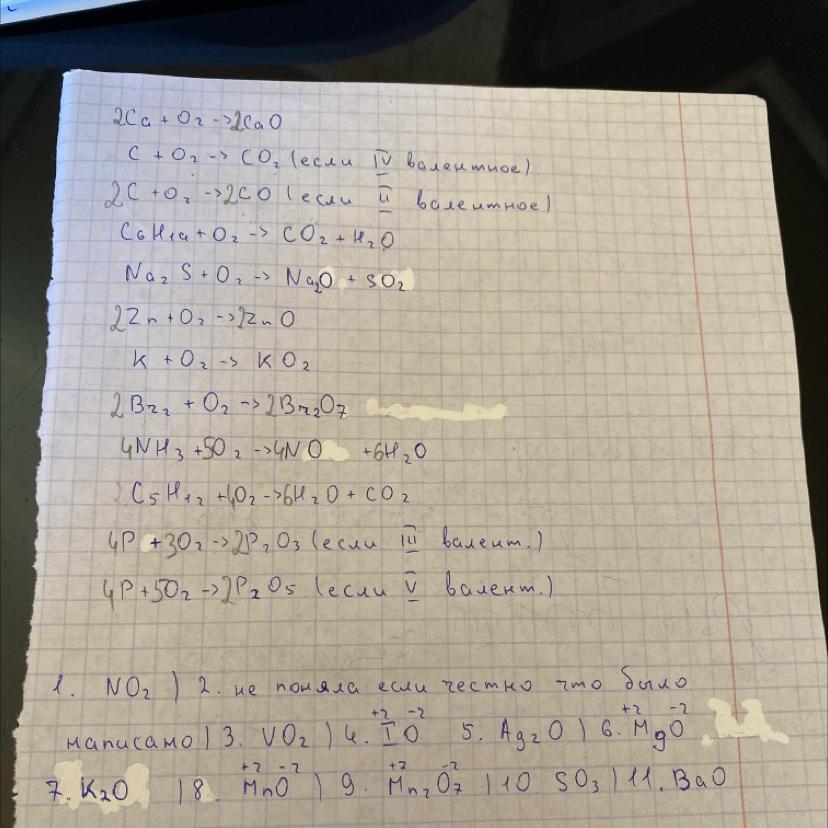 2Ca + O₂ -> 2CaO
C + O₂ -> CO₂ (если IV валентное)
2C + O₂ -> 2CO (если II валентное)
C₆H₁₄ + O₂ -> CO₂ + H₂O
Na₂S + O₂ -> Na₂O + SO₂
2Zn + O₂ -> 2ZnO
K + O₂ -> KO₂
2Br₂ + O₂ -> 2Br₂O₇
4NH₃ + 5O₂ -> 4NO + 6H₂O
C₅H₁₂ + 4O₂ -> 6H₂O + CO₂
4P + 3O₂ -> 2P₂O₃ (если III валент.)
4P + 5O₂ -> 2P₂O₅ (если V валент.)
1. NO₂ ) 2. не поняла если честно что было
написано ) 3. VO₂ ) 4. I⁺²O⁻² 5. Ag₂O ) 6. Mg⁺²O⁻²
7. K₂O ) 8. Mn⁺²O⁻² ) 9. Mn₂⁺⁷O₇⁻² ) 10 SO₃ ) 11. BaO